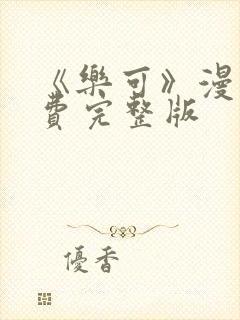 《樂可》漫
費完整版
優香